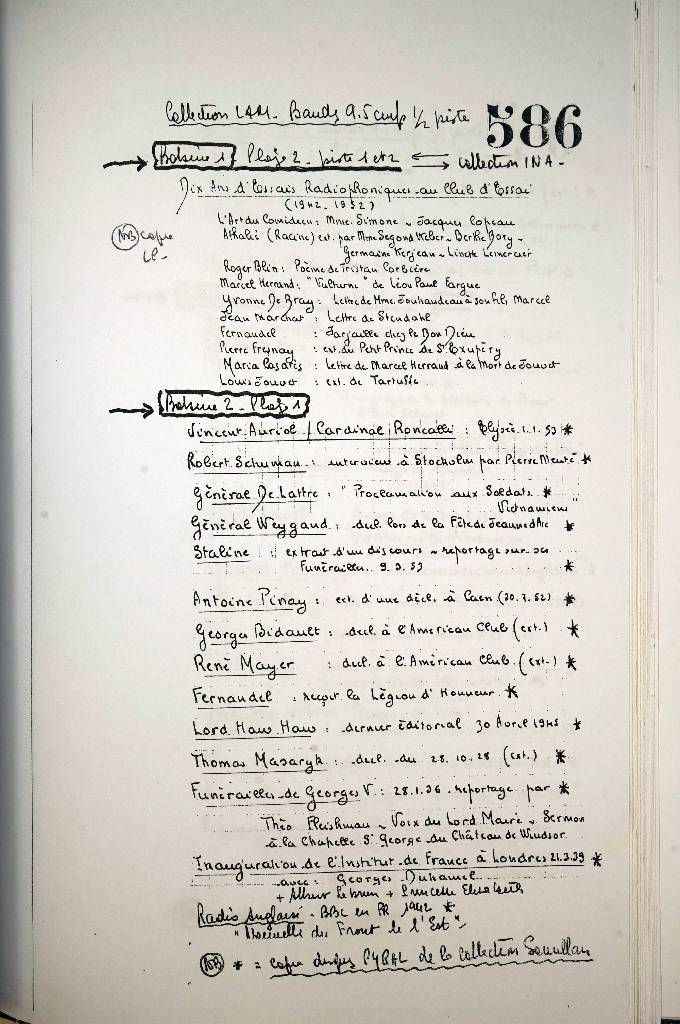 Collection LAM - Bande 9.5 cm/s 1/2 piste
586
Bobine 1 Plage 2 - piste 1 et 2 collection INA -
Dix Ans d'Essais Radiophoniques au Club d'Essai
(1942-1952)
NB copie
L'Art du Comédien : Mme. Simone - Jacques Copeau
Athalie (Racine) ext. par Mme Segond Weber - Berthe Bovy -
Germaine Kerjean - Linette Lemercier
Roger Blin : Poème de Tristan Corbière
Marcel Herrand : "Vulturne" de Léon Paul Fargue
Yvonne De Bray : Lettre de Mme. Jouhandeau à son fils Marcel
Jean Marchat : Lettre de Stendahl
Fernandel : Jarjaille chez le Bon Dieu
Pierre Fresnay : ext. du Petit Prince de St. Exupéry
Maria Casarès : Lettre de Marcel Herrand à la Mort de Jouvet
Louis Jouvet : ext. de Tartuffe
Bobine 2 - Plage 1
Vincent Auriol / Cardinal Roncalli : Elysée 1.1.53 *
Robert Schuman : interview à Stockolm par Pierre *
Général De Lattre : "Proclamation aux Soldats *
Vietnamiens"
Général Weygand : decl. lors de la Fête de Jeanne d'Arc *
Staline : extrait d'un discours - reportage sur ses
Funérailles. 9.3.53 *
Antoine Pinay : ext. d'une décl. à Caen (20.7.52) *
Georges Bidault : decl. à l'American Club (ext.) *
René Mayer : decl. à l'Américan Club. (ext.) *
Fernandel : reçoit la Légion d'Honneur *
Lord Haw Haw : dernier éditorial 30 Avril 1945 *
Thomas Masaryk : decl. du 28.10.28 (ext.) *
Funérailles de Georges V : 28.1.36 - reportage par *
Théo Fleishman - Voix du Lord Maire - Sermon
à la Chapelle St George du Château de Windsor
Inauguration de l'Institut de France à Londres 21.3.39 *
avec : Georges Duhamel
+ Albert Lebrun + Princesse Elisabeth
Radio Anglaise - BBC en FR 1942 *
Front de l'Est" -
NB * = copie disques PYRAL de la collection